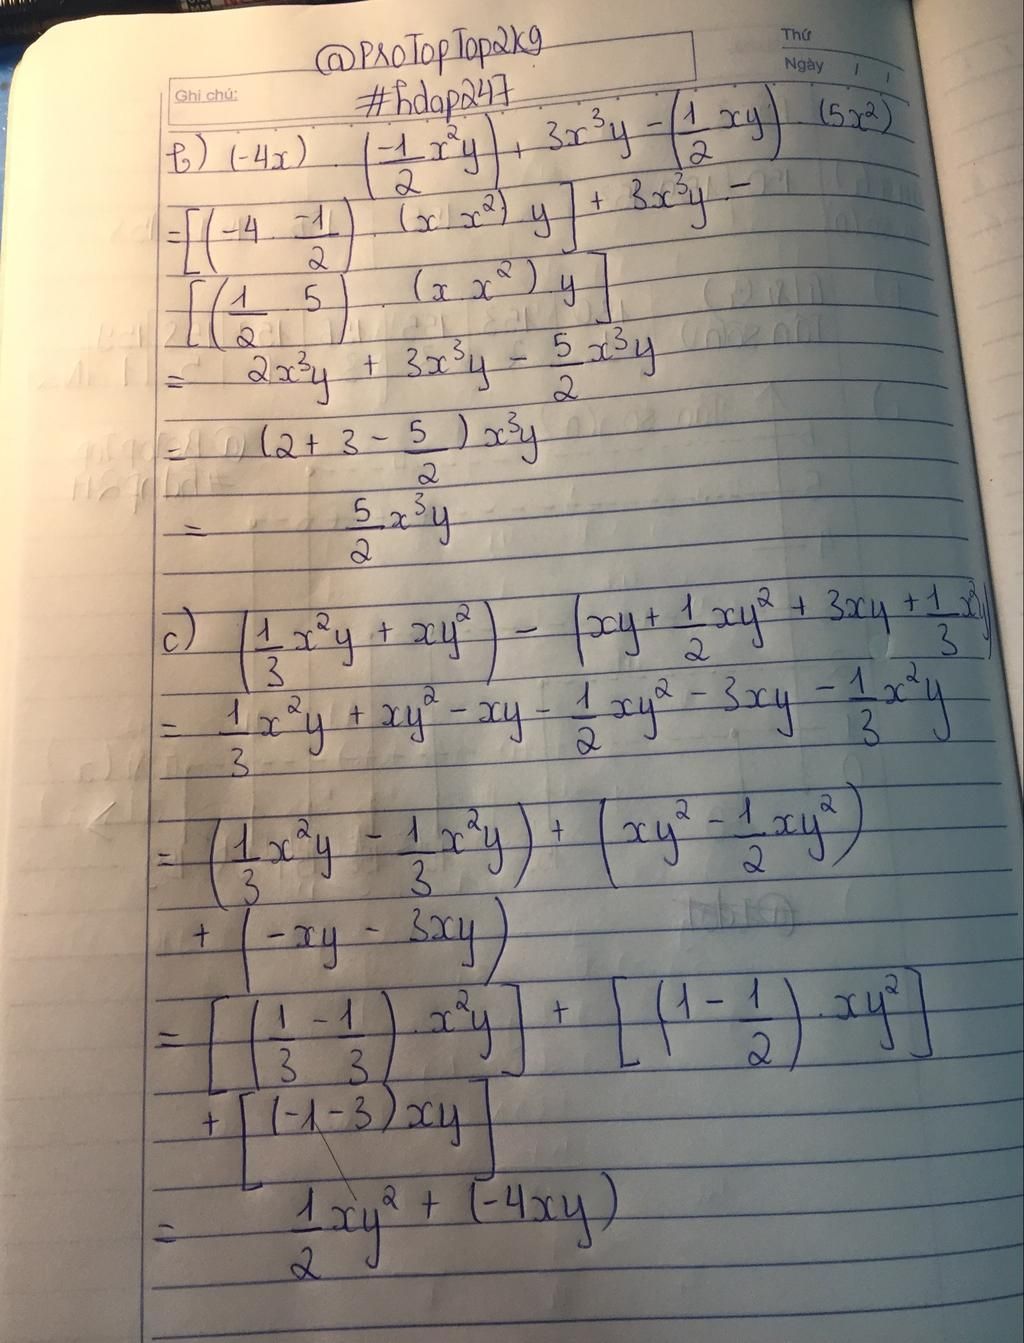 @PROTopTop2k9
Thứ
Ngày / /
Ghi chú:
#hdap247
b) (-4x) . (-1/2 x²y) + 3x³y - (1/2 xy) . (5x²)
= [(-4 . -1/2) . (x . x²) y] + 3x³y -
[(1/2 . 5) . (x x²) y]
= 2x³y + 3x³y - 5/2 x³y
= (2 + 3 - 5/2) x³y
= 5/2 x³y
c) (1/3 x²y + xy²) - (xy + 1/2 xy² + 3xy + 1/3 x²y)
= 1/3 x²y + xy² - xy - 1/2 xy² - 3xy - 1/3 x²y
= (1/3 x²y - 1/3 x²y) + (xy² - 1/2 xy²)
+ (-xy - 3xy)
= [(1/3 - 1/3) . x²y] + [(1 - 1/2) . xy²]
+ [(-1 - 3) xy]
= 1/2 xy² + (-4xy)